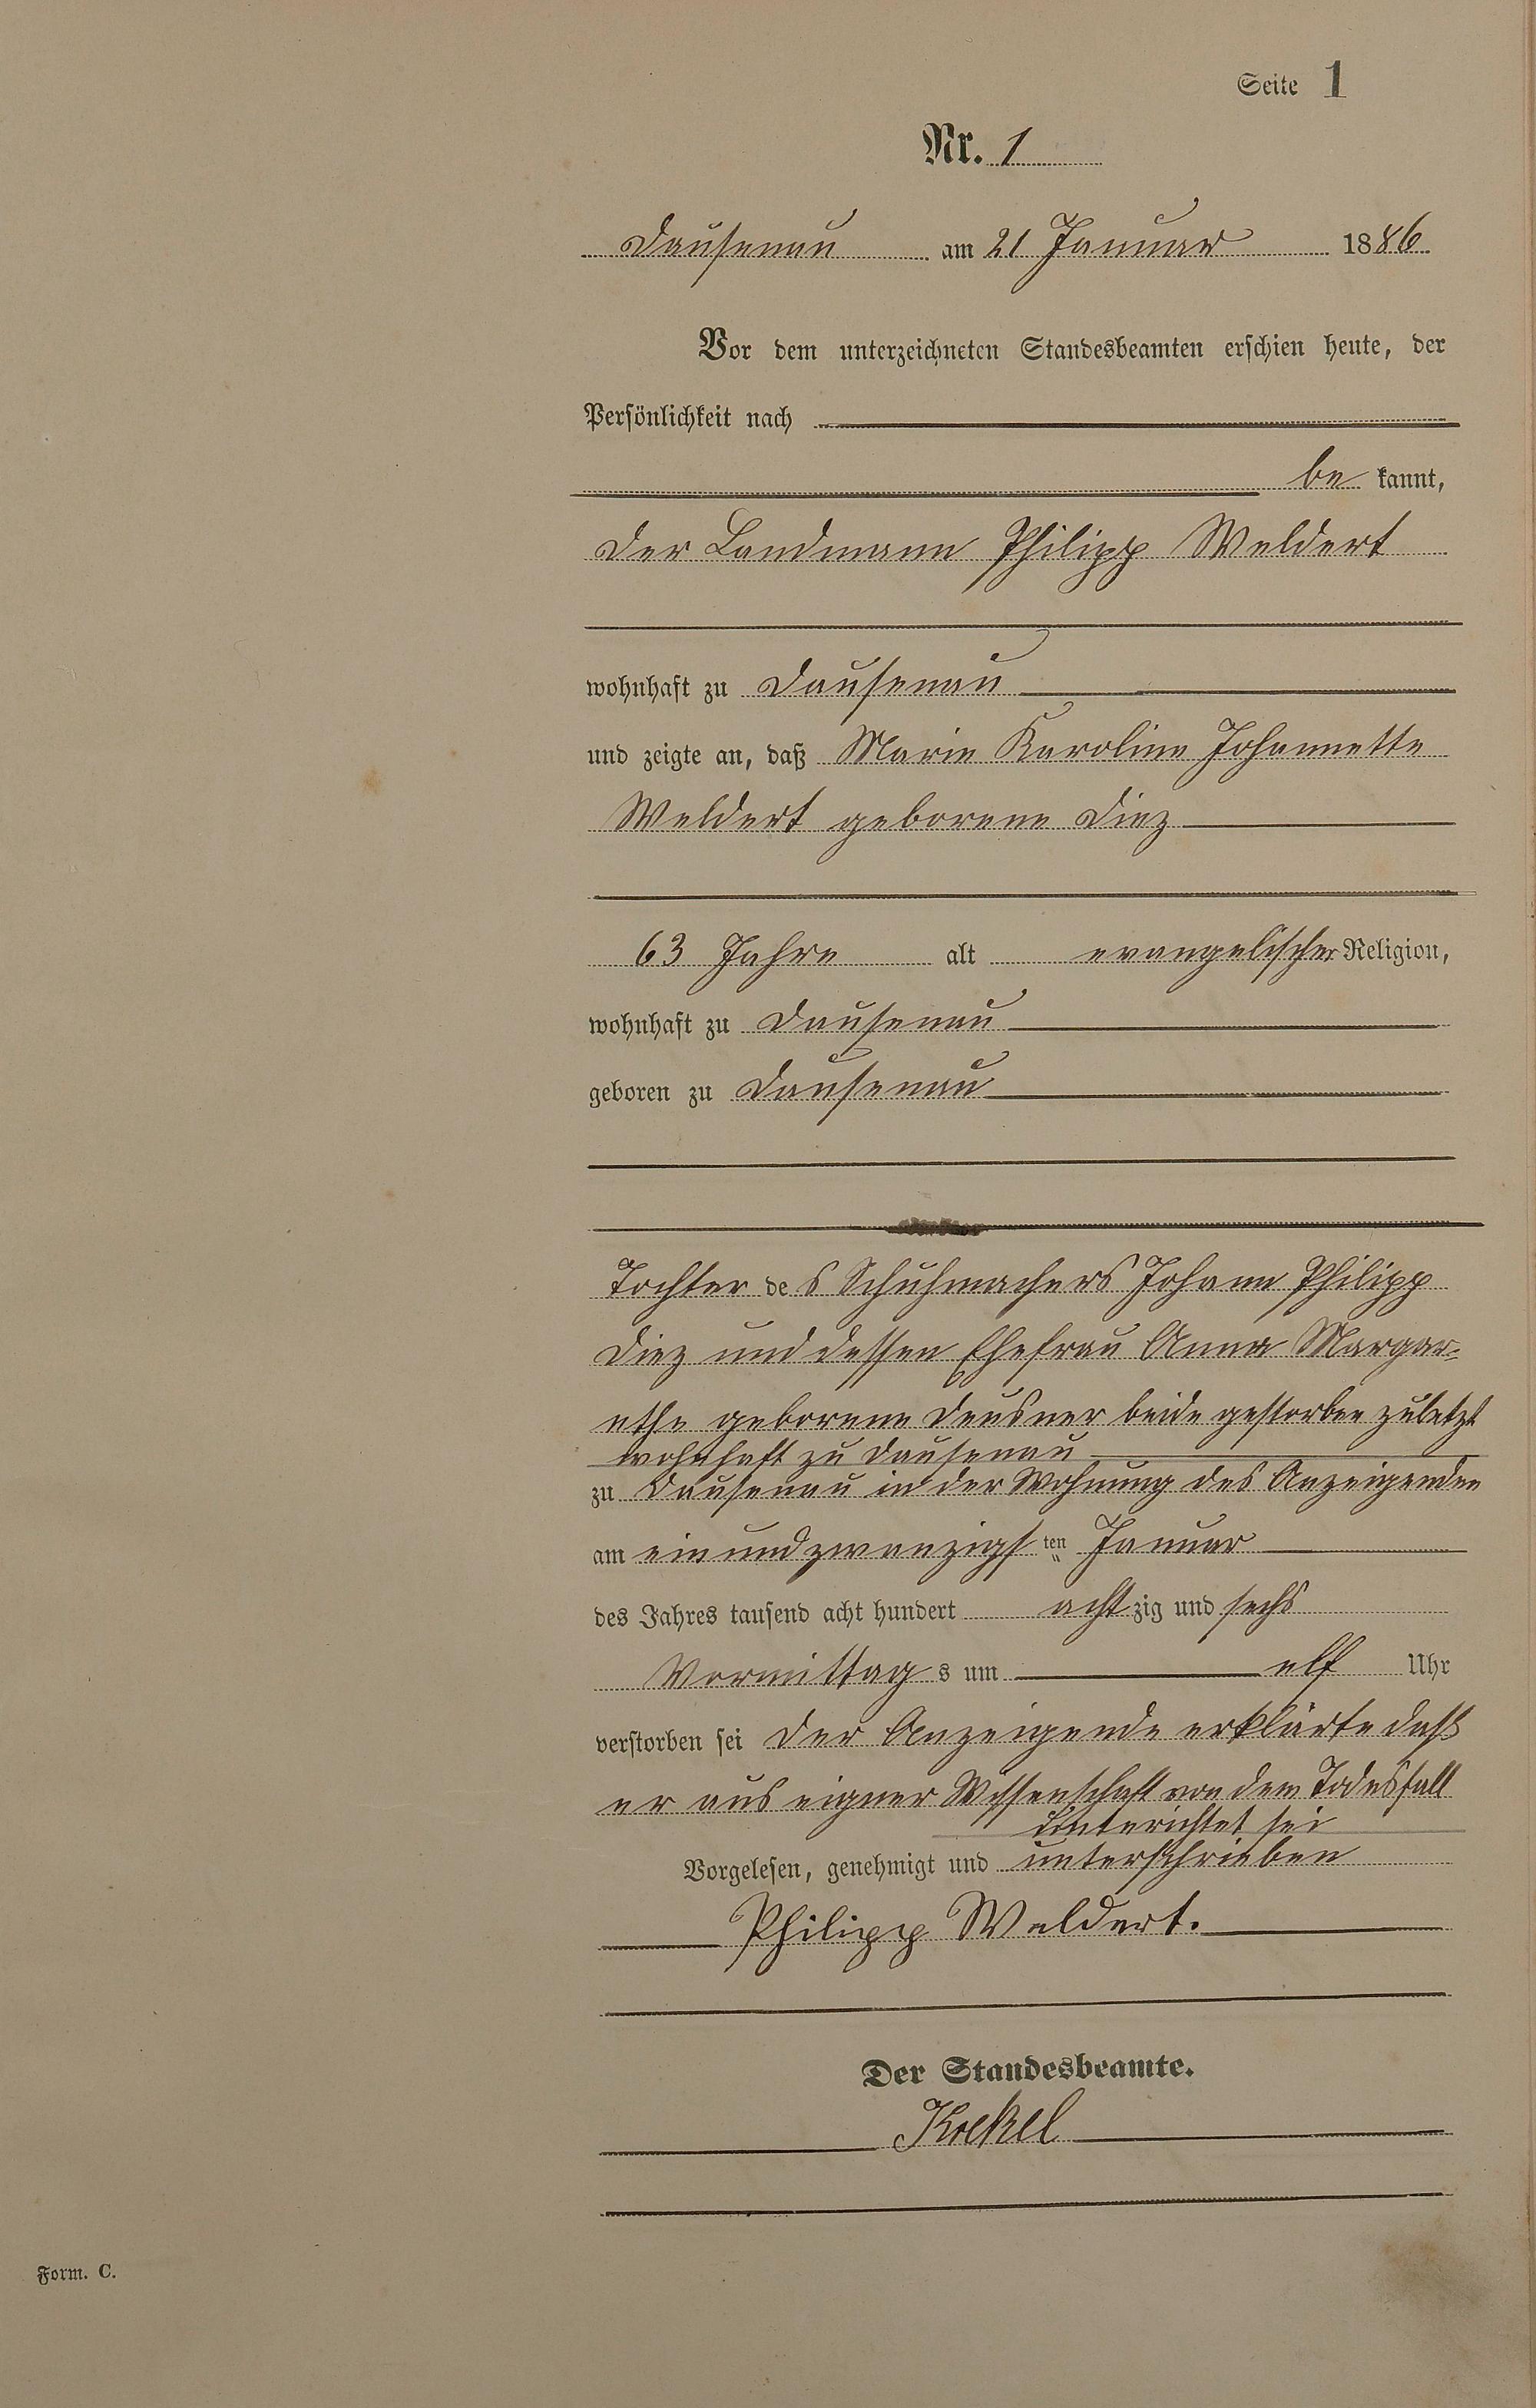 Seite 1
Nr. 1
Dausenau am 21 Januar 1886
Vor dem unterzeichneten Standesbeamten erschien heute, der
Persönlichkeit nach
be kannt,
der Landmann Philipp Weldert
wohnhaft zu Dausenau
und zeigte an, daß Marie Karoline Johannette
Weldert geborene Diez
63 Jahre alt evangelischer Religion,
wohnhaft zu Dausenau
geboren zu Dausenau
Tochter des Schuhmachers Johann Philipp
Diez und dessen Ehefrau Anna Margar-
ethe geborene Deusner beide gestorben zuletzt
wohnhaft zu Dausenau
zu Dausenau in der Wohnung des Anzeigenden
am ein und zwanzigsten Januar
des Jahres tausend acht hundert achtzig und sechs
Vormittags um elf Uhr
verstorben sei der Anzeigende erklärte daß
er aus eigner Wissenschaft von dem Todesfall
unterichtet sei
Vorgelesen, genehmigt und unterschrieben
Philipp Weldert.
Der Standesbeamte.
Form. C.